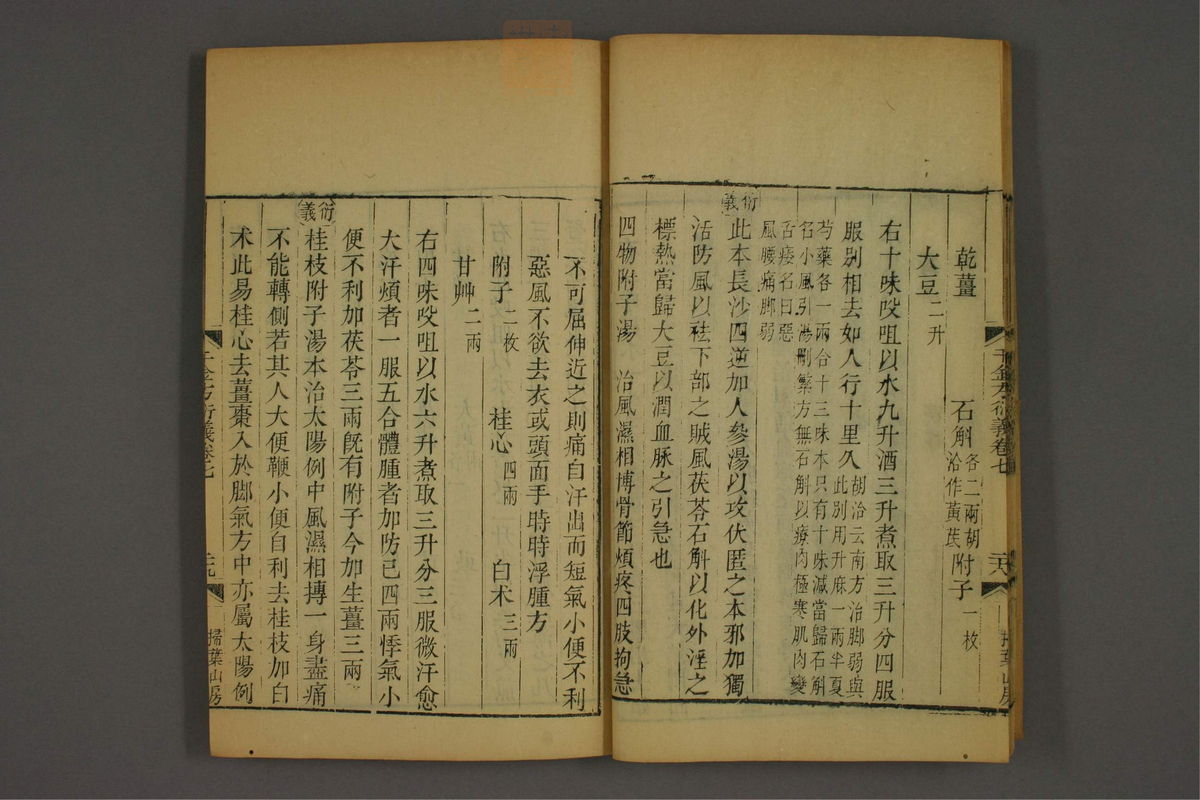 乾薑　石斛各二兩胡洽作黃芪　附子一枚
大豆二升
右十味㕮咀以水九升酒三升煮取三升分四服
服別相去如人行十里久胡洽云南方治脚弱與此別用升麻一兩半夏
芍藥各一兩合十三味本只有十味減當歸石斛
名小風引湯刪繁方無石斛以療肉極寒肌肉變
舌痿名曰惡
風腰痛脚弱
衍義
此本長沙四逆加人參湯以攻伏匿之本邪加獨
活防風以祛下部之賊風茯苓石斛以化外淫之
標熱當歸大豆以潤血脉之引急也
四物附子湯　治風濕相搏骨節煩疼四肢拘急
不可屈伸近之則痛自汗出而短氣小便不利
惡風不欲去衣或頭面手時時浮腫方
附子二枚　桂心四兩　白术三兩
甘艸二兩
右四味㕮咀以水六升煮取三升分三服微汗愈
大汗煩者一服五合體腫者加防己四兩悸氣小
便不利加茯苓三兩旣有附子今加生薑三兩
衍義
桂枝附子湯本治太陽例中風濕相搏一身盡痛
不能轉側若其人大便鞕小便自利去桂枝加白
术此易桂心去薑棗入於脚氣方中亦屬太陽例
千金方衍義卷七
掃葉山房
千金方衍義卷七
掃葉山房